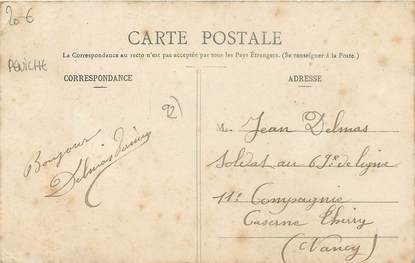 20€
PENICHE
CARTE POSTALE
La Correspondance au recto n'est pas acceptée par tous les Pays Étrangers. (Se renseigner à la Poste.)
CORRESPONDANCE
ADRESSE
92)
Bonjour
Delmas
M. Jean Delmas
Soldat au 69e de ligne
11e Compagnie
Caserne Thiry
(Nancy)